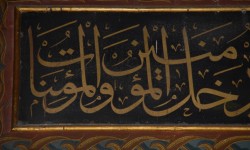 دخل المؤمنين والمؤمنات